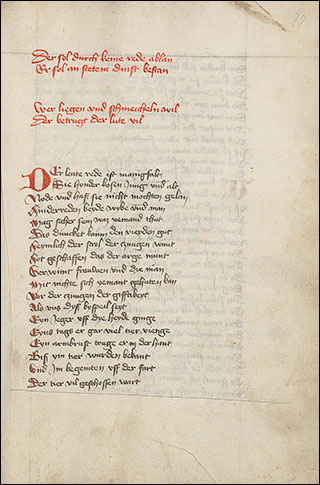 Der sol durch keine rede ablan
Er sol an stetem dinst bestan
Wer liegen vnd schmeicheln wil
Der betrugt der lute vil
Der leute rede ist manigfalt
Sie hinder kosen Jung vnd alt
Node vnd haß sie nicht mochten gelan
Hinderreden beyde wybe vnd man
Mag sicher sein vor yemand thut
Das duncket kaum den vierden gut
Heymlich der stral der zungen wunt
Hot geschaffen das der arge munt
Ver wunt frauwen vnd die man
Mit nichte sich yemant gehuten kan
Vor der zungen der gifftikeyt
Als vns dyß byspeil seyt
Eyn Jeger vff dye herde ginge
Eyns tags er gar viel tier vienge
Eyn armbrust truge er in der hant
Biß ym tier wurden bekant
Vnd Jm begenten vff der fart
Der tier vil geschossen wart